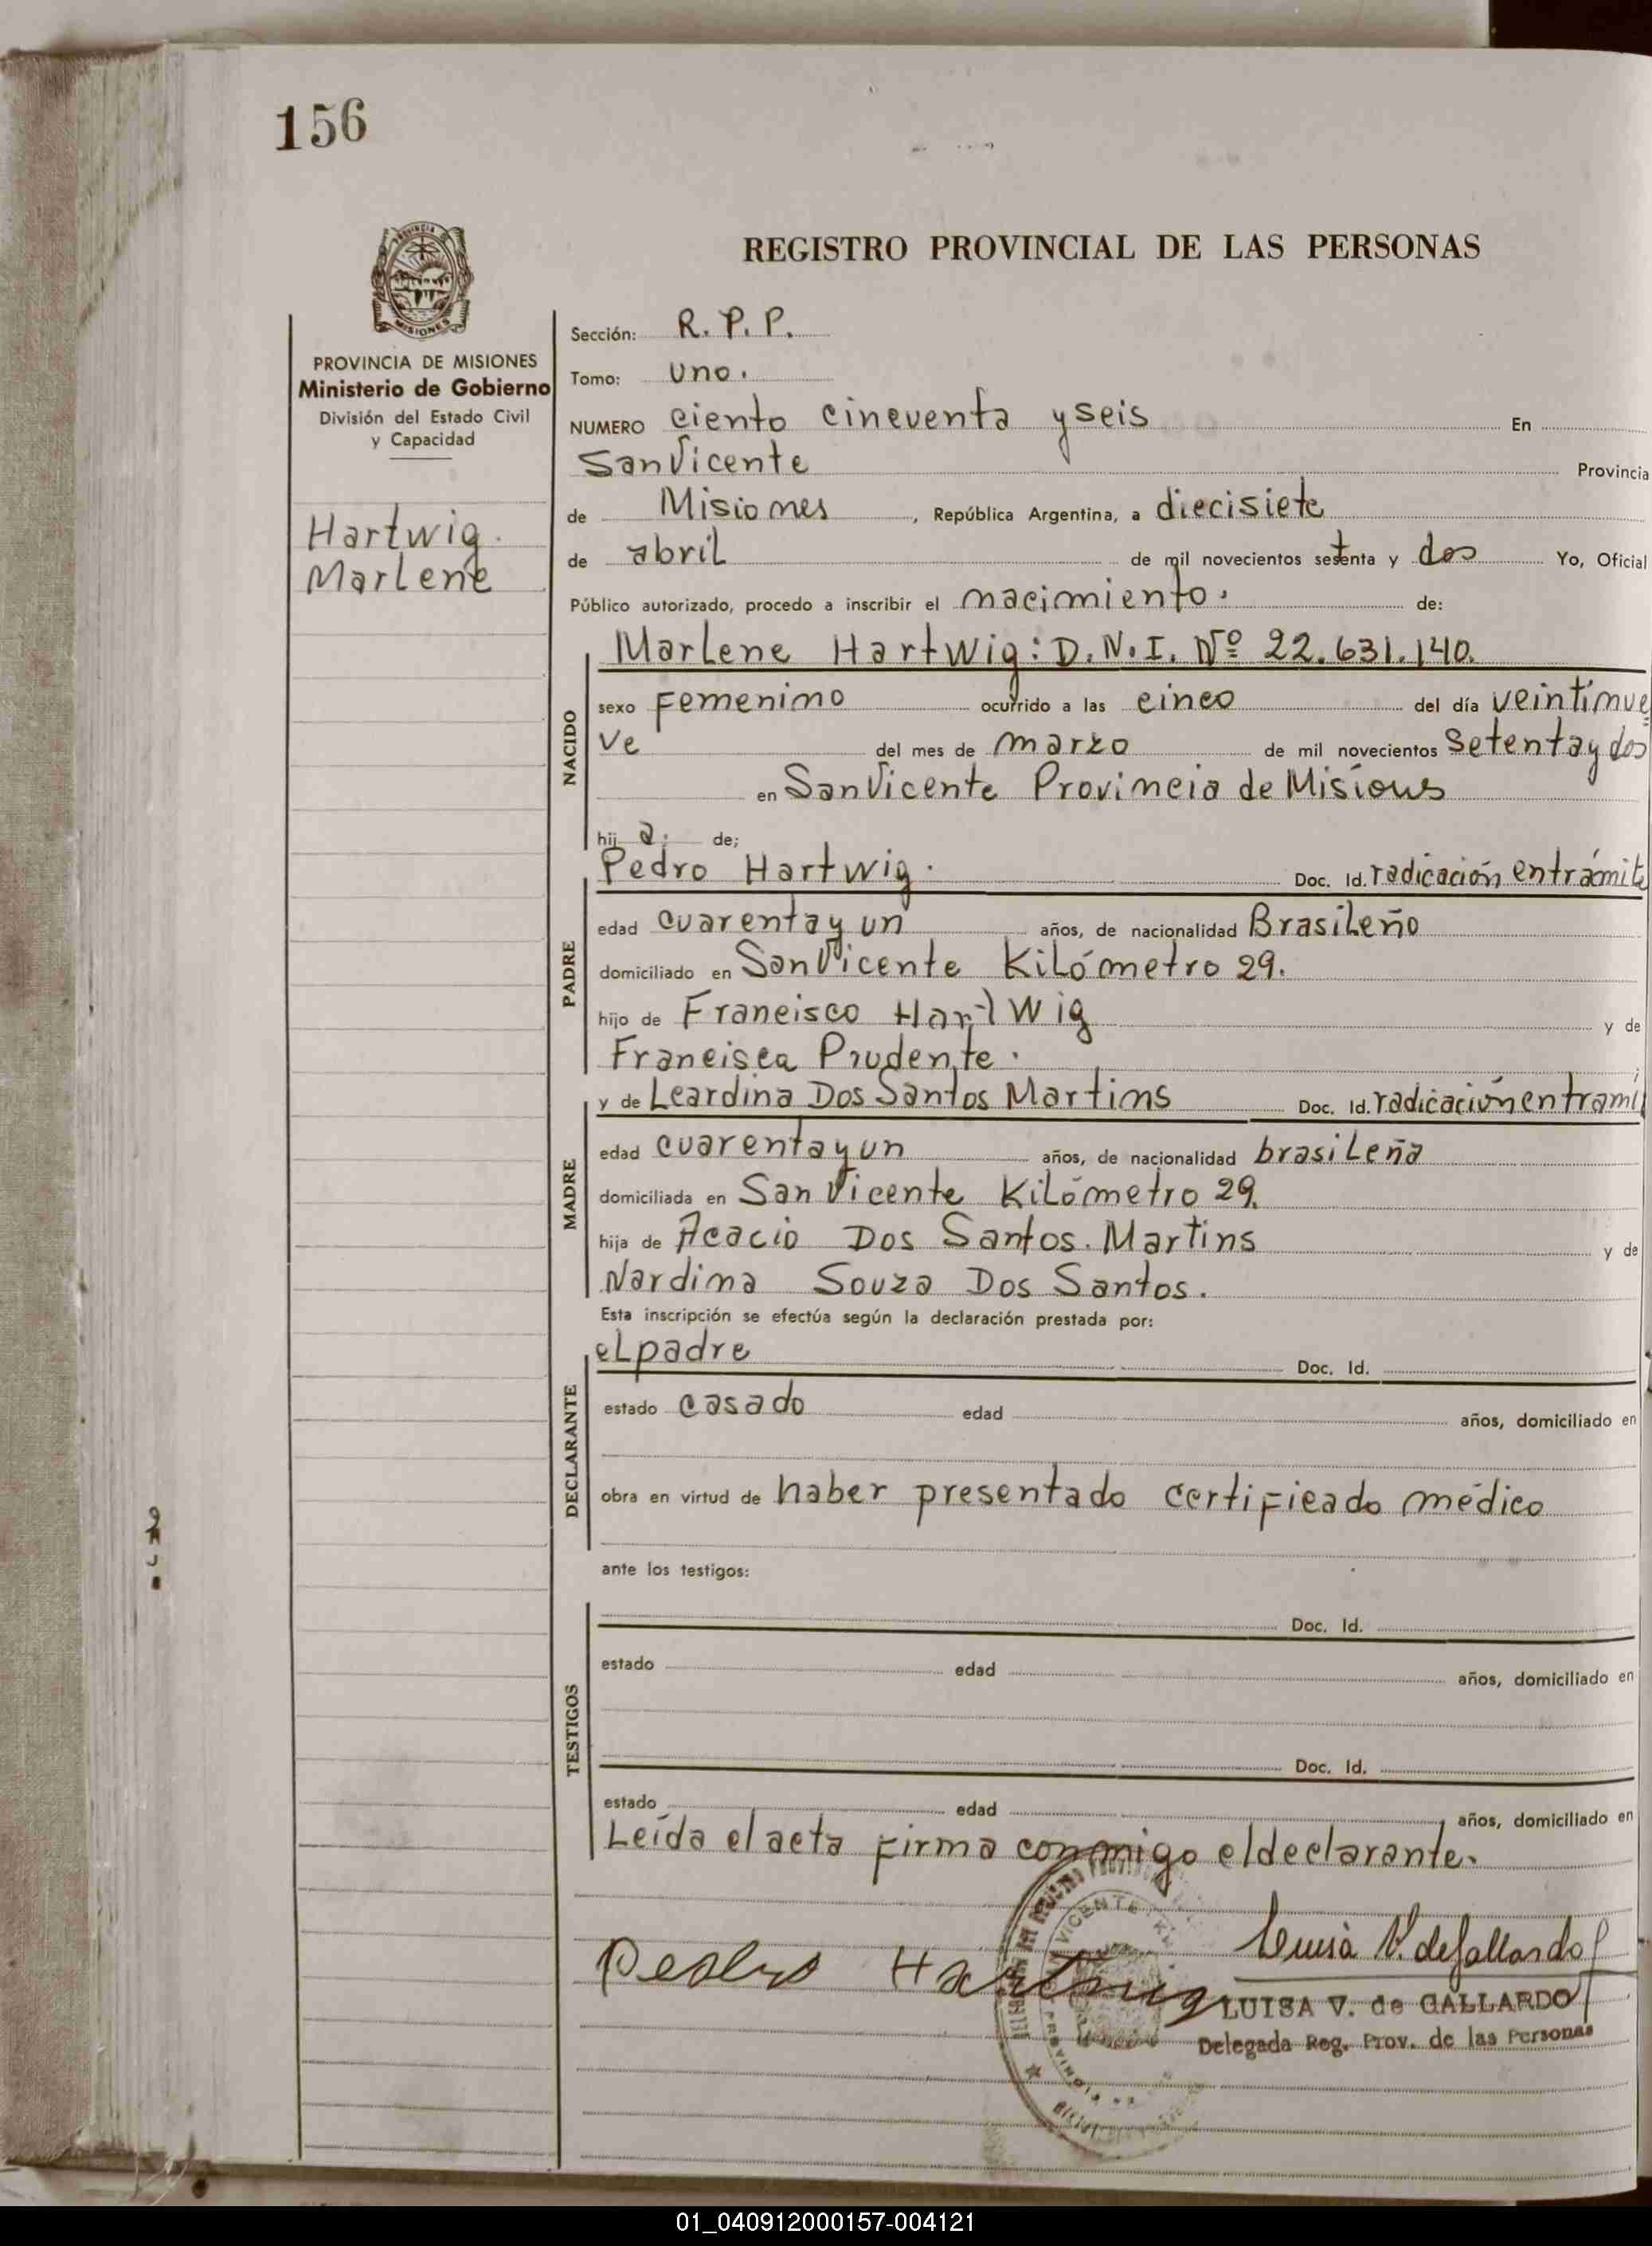 156
REGISTRO PROVINCIAL DE LAS PERSONAS
PROVINCIA
MISIONES
PROVINCIA DE MISIONES
Ministerio de Gobierno
División del Estado Civil
y Capacidad
Hartwig.
Marlene
Sección: R. P. P.
Tomo: uno.
NUMERO ciento cincuenta y seis En
San Vicente Provincia
de Misiones, República Argentina, a diecisiete
de abril de mil novecientos setenta y dos Yo, Oficial
Público autorizado, procedo a inscribir el nacimiento. de:
NACIDO
Marlene Hartwig: D.N.I. Nº 22.631.140.
sexo Femenino ocurrido a las cinco del día veintinue
ve del mes de marzo de mil novecientos setenta y dos
en San Vicente Provincia de Misiones
hij a. de;
PADRE
Pedro Hartwig. Doc. Id. radicación en trámite
edad cuarenta y un años, de nacionalidad Brasileño
domiciliado en San Vicente Kilómetro 29.
hijo de Francisco Hartwig y de
Francisca Prudente.
MADRE
y de Leardina Dos Santos Martins Doc. Id. radicación en trami
edad cuarenta y un años, de nacionalidad brasileña
domiciliada en San Vicente Kilómetro 29.
hija de Acacio Dos Santos. Martins y de
Nardina Souza Dos Santos.
Esta inscripción se efectúa según la declaración prestada por:
DECLARANTE
el padre Doc. Id.
estado casado edad años, domiciliado en
obra en virtud de haber presentado certificado médico
ante los testigos:
TESTIGOS
Doc. Id.
estado edad años, domiciliado en
Doc. Id.
estado edad años, domiciliado en
Leída el acta firma conmigo el declarante.
VICENTE
Pedro Hartwig
Luisa V. de Gallardo
LUISA V. de GALLARDO
Delegada Reg. Prov. de las Personas
01_040912000157-004121